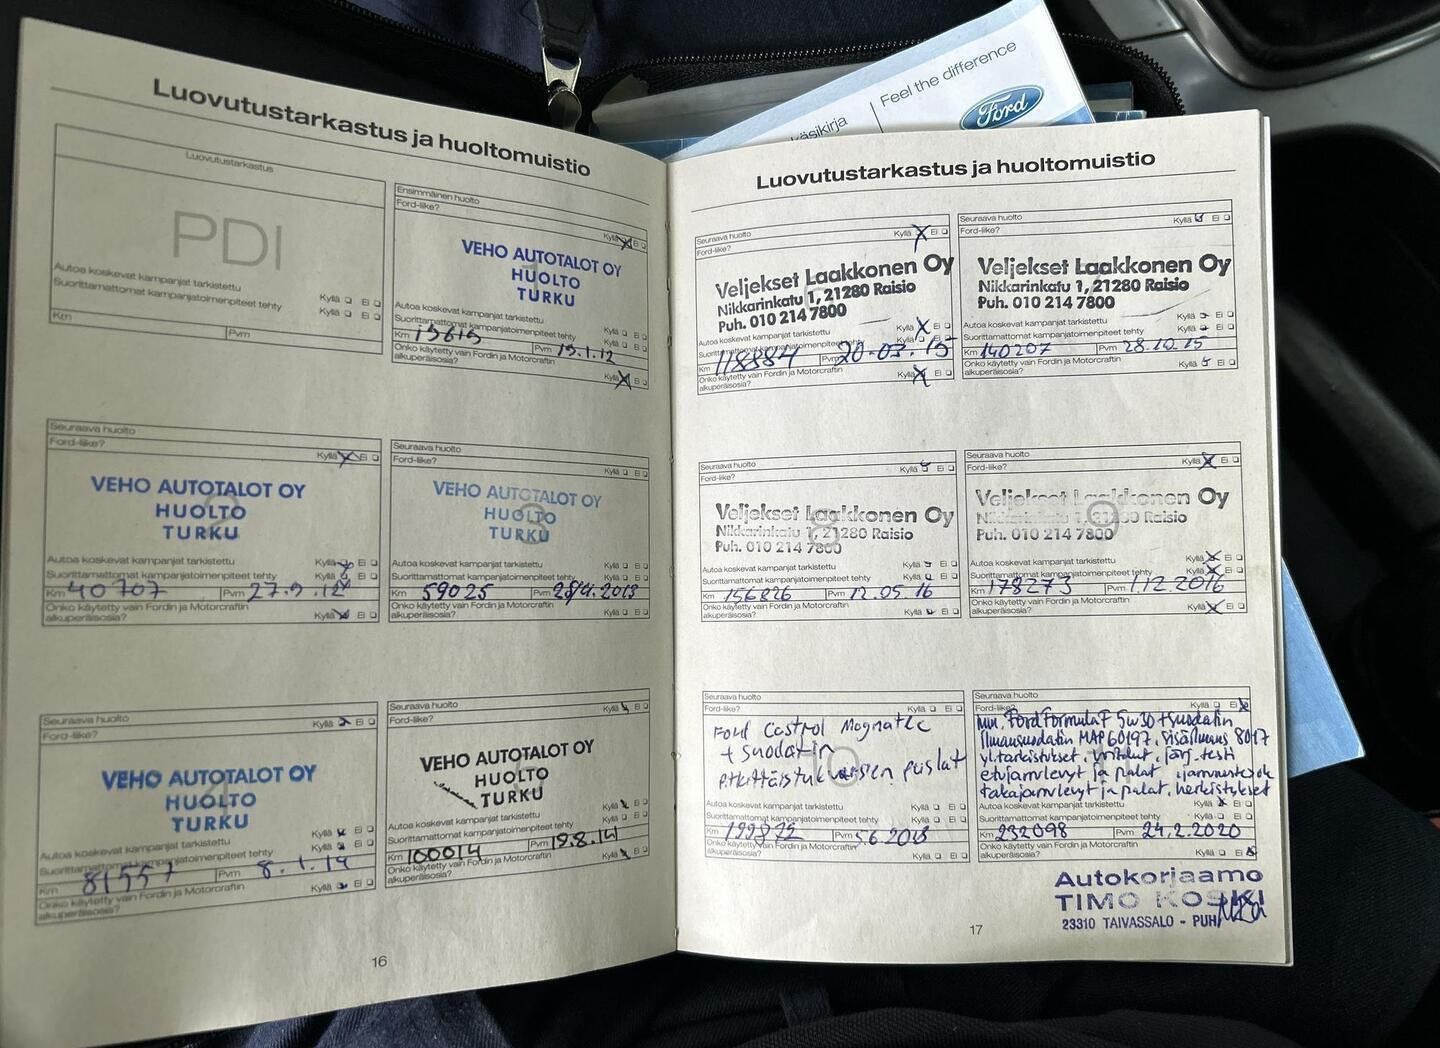 käsikirja
Feel the difference
Ford
Luovutustarkastus ja huoltomuistio
Luovutustarkastus
PDI
Autoa koskevat kampanjat tarkistettu
Suorittamattomat kampanjatoimenpiteet tehty
Kyllä Ei
Kyllä Ei
Km
Pvm
Ensimmäinen huolto
Ford-liike?
Kyllä Ei
VEHO AUTOTALOT OY
HUOLTO
TURKU
Autoa koskevat kampanjat tarkistettu
Suorittamattomat kampanjatoimenpiteet tehty
Kyllä Ei
Kyllä Ei
Km 15615 Pvm 19.1.12
Onko käytetty vain Fordin ja Motorcraftin
alkuperäisosia?
Kyllä Ei
Seuraava huolto
Ford-liike?
Kyllä Ei
2
VEHO AUTOTALOT OY
HUOLTO
TURKU
Autoa koskevat kampanjat tarkistettu
Kyllä Ei
Suorittamattomat kampanjatoimenpiteet tehty
Kyllä Ei
Km 40707 Pvm 27.9.12
Onko käytetty vain Fordin ja Motorcraftin
alkuperäisosia?
Kyllä Ei
Seuraava huolto
Ford-liike?
Kyllä Ei
3
VEHO AUTOTALOT OY
HUOLTO
TURKU
Autoa koskevat kampanjat tarkistettu
Kyllä Ei
Suorittamattomat kampanjatoimenpiteet tehty
Kyllä Ei
Km 59025 Pvm 4.2013
Onko käytetty vain Fordin ja Motorcraftin
alkuperäisosia?
Kyllä Ei
Seuraava huolto
Ford-liike?
Kyllä Ei
4
VEHO AUTOTALOT OY
HUOLTO
TURKU
Autoa koskevat kampanjat tarkistettu
Kyllä Ei
Suorittamattomat kampanjatoimenpiteet tehty
Kyllä Ei
Km 81557 Pvm 8.1.14
Onko käytetty vain Fordin ja Motorcraftin
alkuperäisosia?
Kyllä Ei
Seuraava huolto
Ford-liike?
Kyllä Ei
5
VEHO AUTOTALOT OY
HUOLTO
TURKU
Autoa koskevat kampanjat tarkistettu
Kyllä Ei
Suorittamattomat kampanjatoimenpiteet tehty
Kyllä Ei
Km 100014 Pvm 19.8.14
Onko käytetty vain Fordin ja Motorcraftin
alkuperäisosia?
Kyllä Ei
16
Luovutustarkastus ja huoltomuistio
Seuraava huolto
Ford-liike?
Kyllä Ei
Veljekset Laakkonen Oy
Nikkarinkatu 1, 21280 Raisio
Puh. 010 214 7800
Autoa koskevat kampanjat tarkistettu
Kyllä Ei
Suorittamattomat kampanjatoimenpiteet tehty
Kyllä Ei
Km 118884 Pvm 20.03.15
Onko käytetty vain Fordin ja Motorcraftin
alkuperäisosia?
Kyllä Ei
Seuraava huolto
Ford-liike?
Kyllä Ei
Veljekset Laakkonen Oy
Nikkarinkatu 1, 21280 Raisio
Puh. 010 214 7800
Autoa koskevat kampanjat tarkistettu
Kyllä Ei
Suorittamattomat kampanjatoimenpiteet tehty
Kyllä Ei
Km 140207 Pvm 28.10.15
Onko käytetty vain Fordin ja Motorcraftin
alkuperäisosia?
Kyllä Ei
Seuraava huolto
Ford-liike?
Kyllä Ei
8
Veljekset Laakkonen Oy
Nikkarinkatu 1, 21280 Raisio
Puh. 010 214 7800
Autoa koskevat kampanjat tarkistettu
Kyllä Ei
Suorittamattomat kampanjatoimenpiteet tehty
Kyllä Ei
Km 156826 Pvm 12.05.16
Onko käytetty vain Fordin ja Motorcraftin
alkuperäisosia?
Kyllä Ei
Seuraava huolto
Ford-liike?
Kyllä Ei
9
Veljekset Laakkonen Oy
Nikkarinkatu 1, 21280 Raisio
Puh. 010 214 7800
Autoa koskevat kampanjat tarkistettu
Kyllä Ei
Suorittamattomat kampanjatoimenpiteet tehty
Kyllä Ei
Km 178273 Pvm 1.12.2016
Onko käytetty vain Fordin ja Motorcraftin
alkuperäisosia?
Kyllä Ei
Seuraava huolto
Ford-liike?
Kyllä Ei
10
Ford Castrol Magnatec
+ suodatin
pitkittäistukivarsien puslat
Autoa koskevat kampanjat tarkistettu
Kyllä Ei
Suorittamattomat kampanjatoimenpiteet tehty
Kyllä Ei
Km 199872 Pvm 5.6.2018
Onko käytetty vain Fordin ja Motorcraftin
alkuperäisosia?
Kyllä Ei
Seuraava huolto
Ford-liike?
Kyllä Ei
11
Ford Formula F 5w30 + suodatin
Ilmansuodatin MAP 60197, sisäilmans 8017
yl.tarkistukset, voitelut, järj. testi
etujarrulevyt ja palat, jarrunestejok
takajarrulevyt ja palat, herkistykset
Autoa koskevat kampanjat tarkistettu
Kyllä Ei
Suorittamattomat kampanjatoimenpiteet tehty
Kyllä Ei
Km 232098 Pvm 24.2.2020
Onko käytetty vain Fordin ja Motorcraftin
alkuperäisosia?
Kyllä Ei
Autokorjaamo
TIMO KOSKI
23310 TAIVASSALO - PUH
17